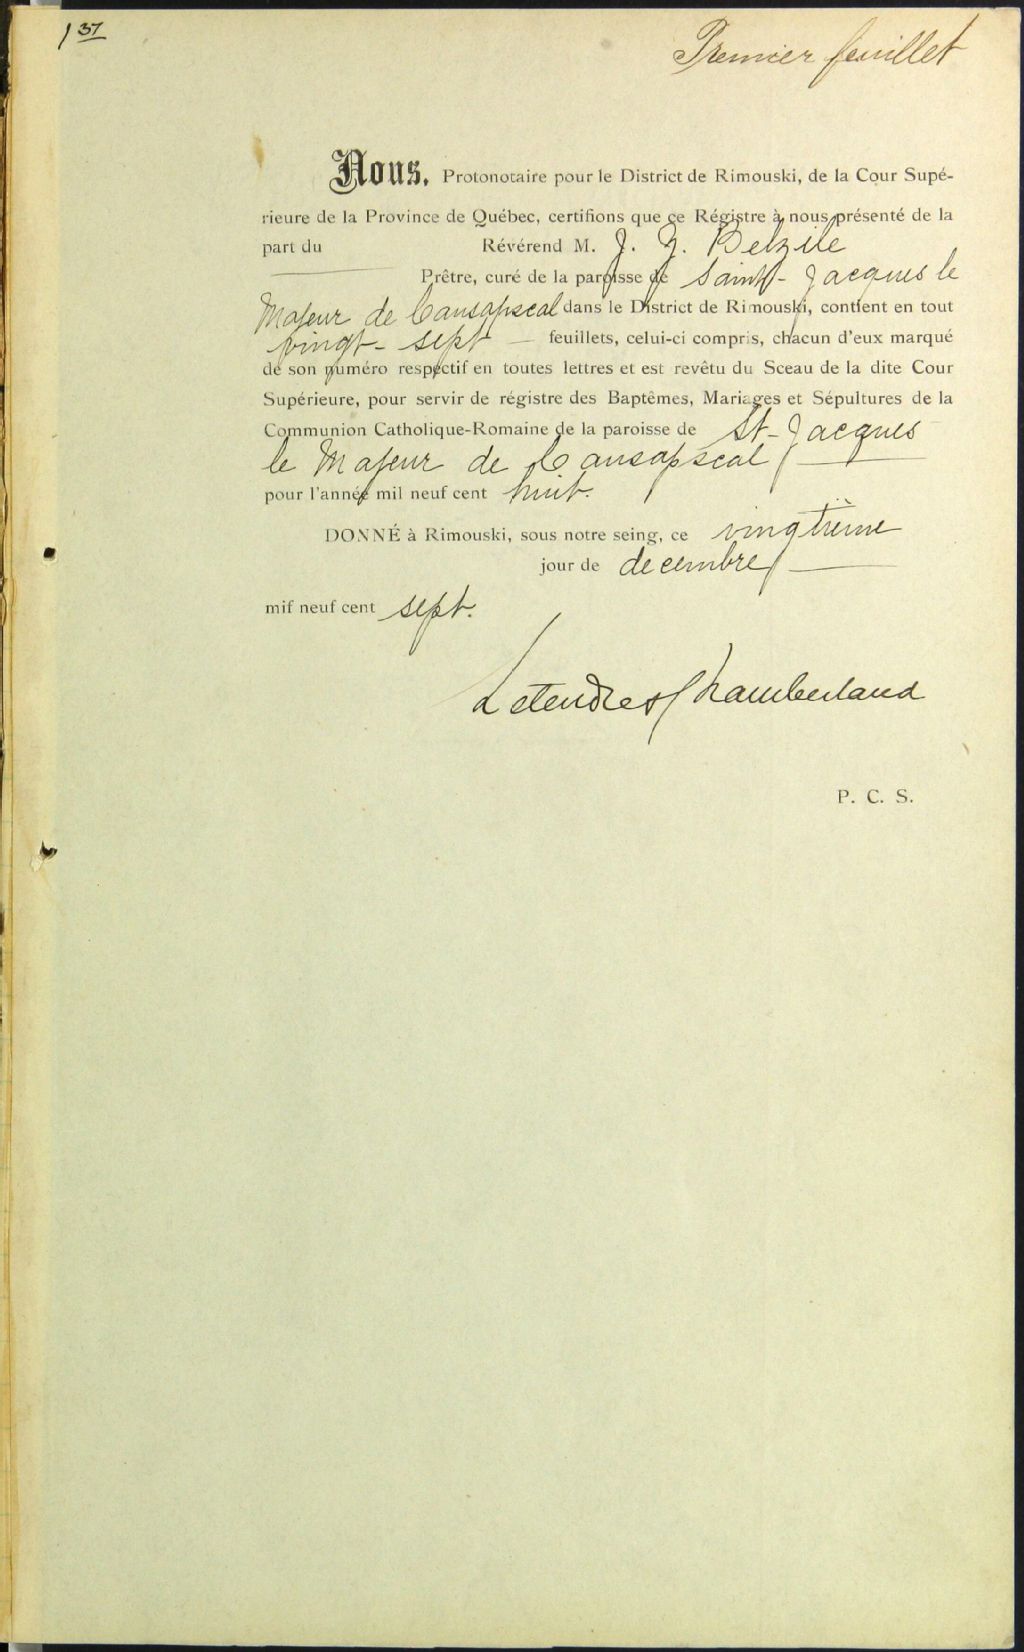 1 37
Premier feuillet
Nous, Protonotaire pour le District de Rimouski, de la Cour Supé-
rieure de la Province de Québec, certifions que ce Régistre à nous présenté de la
part du Révérend M. J. Y. Belzile
Prêtre, curé de la paroisse de Saint-Jacques le
Majeur de Causapscal dans le District de Rimouski, contient en tout
vingt-sept feuillets, celui-ci compris, chacun d'eux marqué
de son numéro respectif en toutes lettres et est revêtu du Sceau de la dite Cour
Supérieure, pour servir de régistre des Baptêmes, Mariages et Sépultures de la
Communion Catholique-Romaine de la paroisse de St-Jacques
le Majeur de Causapscal
pour l'année mil neuf cent huit.
DONNÉ à Rimouski, sous notre seing, ce vingtième
jour de decembre
mil neuf cent sept.
Letendre & Chamberland
P. C. S.